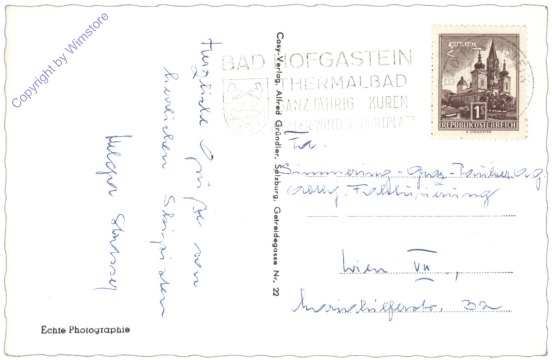 Copyright by Wimstore
Herzliche Grüße von
herrlichen Skipisten
Helga
Cosy-Verlag, Alfred Gründler, Salzburg, Getreidegasse Nr. 22
BAD HOFGASTEIN
THERMALBAD
GANZJÄHRIG KUREN
WINTERSPORTPLATZ
1S
REPUBLIK ÖSTERREICH
Fa.
Simmering-Graz-Pauker A.G.
Abtlg. Fakturierung
Wien VII.,
Mariahilferstr. 32
Echte Photographie